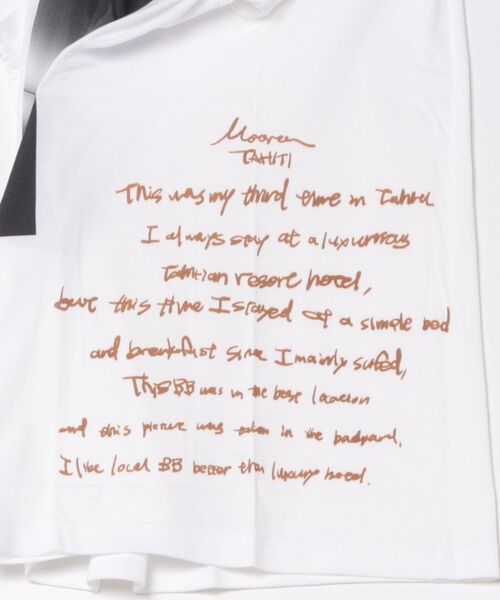 Moorea
TAHITI
This was my third time in Tahiti
I always stay at a luxurious
Tahitian resort hotel,
but this time I stayed at a simple bed
and breakfast since I mainly surfed,
This BB was in the best location
and this picture was taken in the backyard,
I like local BB better than luxury hotel.